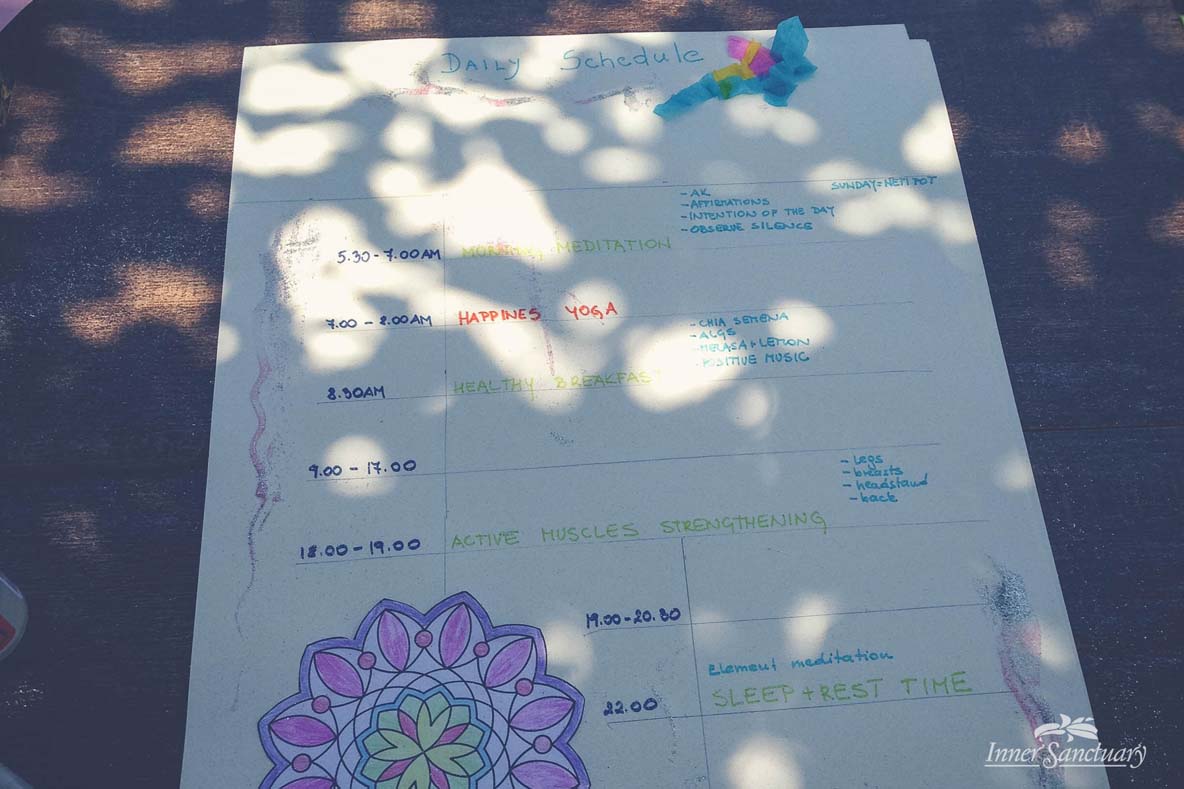 DAILY Schedule
SUNDAY = NETI POT
- AK
- AFFIRMATIONS
- INTENTION OF THE DAY
- OBSERVE SILENCE
5.30 - 7.00 AM MORNING MEDITATION
7.00 - 8.00 AM HAPPINES YOGA
- CHIA SEMENA
- ALGS
- MELASA + LEMON
- POSITIVE MUSIC
8.30 AM HEALTHY BREAKFAST
9.00 - 17.00
- legs
- breasts
- headstand
- back
18.00 - 19.00 ACTIVE MUSCLES STRENGTHENING
19.00 - 20.30
Element meditation
22.00 SLEEP + REST TIME
Inner Sanctuary